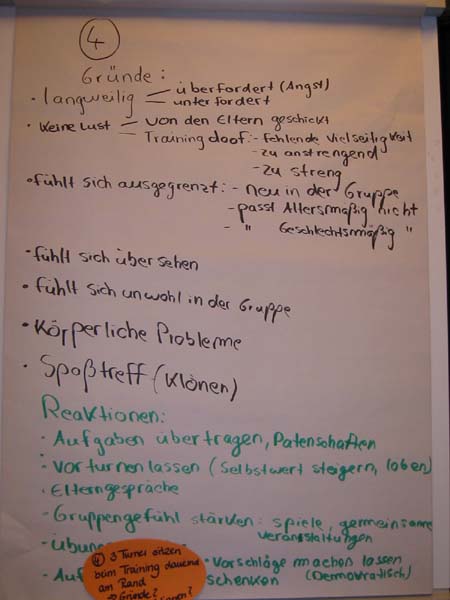 4
Gründe:
• langweilig — überfordert (Angst)
— unterfordert
• Keine Lust — von den Eltern geschickt
— Training doof: - fehlende Vielseitigkeit
- zu anstrengend
- zu streng
• fühlt sich ausgegrenzt: - neu in der Gruppe
- passt Altersmäßig nicht
- " Geschlechtsmäßig "
• fühlt sich übersehen
• fühlt sich unwohl in der Gruppe
• Körperliche Probleme
• Spaßtreff (Klönen)
Reaktionen:
• Aufgaben übertragen, Patenschaften
• vorturnen lassen (Selbstwert steigern, loben)
• Elterngespräche
• Gruppengefühl stärken: spiele, gemeinsame
veranstaltungen
• Übun
• Vorschläge machen lassen
(Demokratisch)
• Auf schenken
4 3 Turner sitzen
beim Training dauernd
am Rand
Gründe?